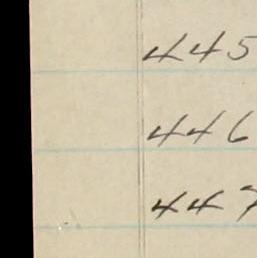 445
446
447